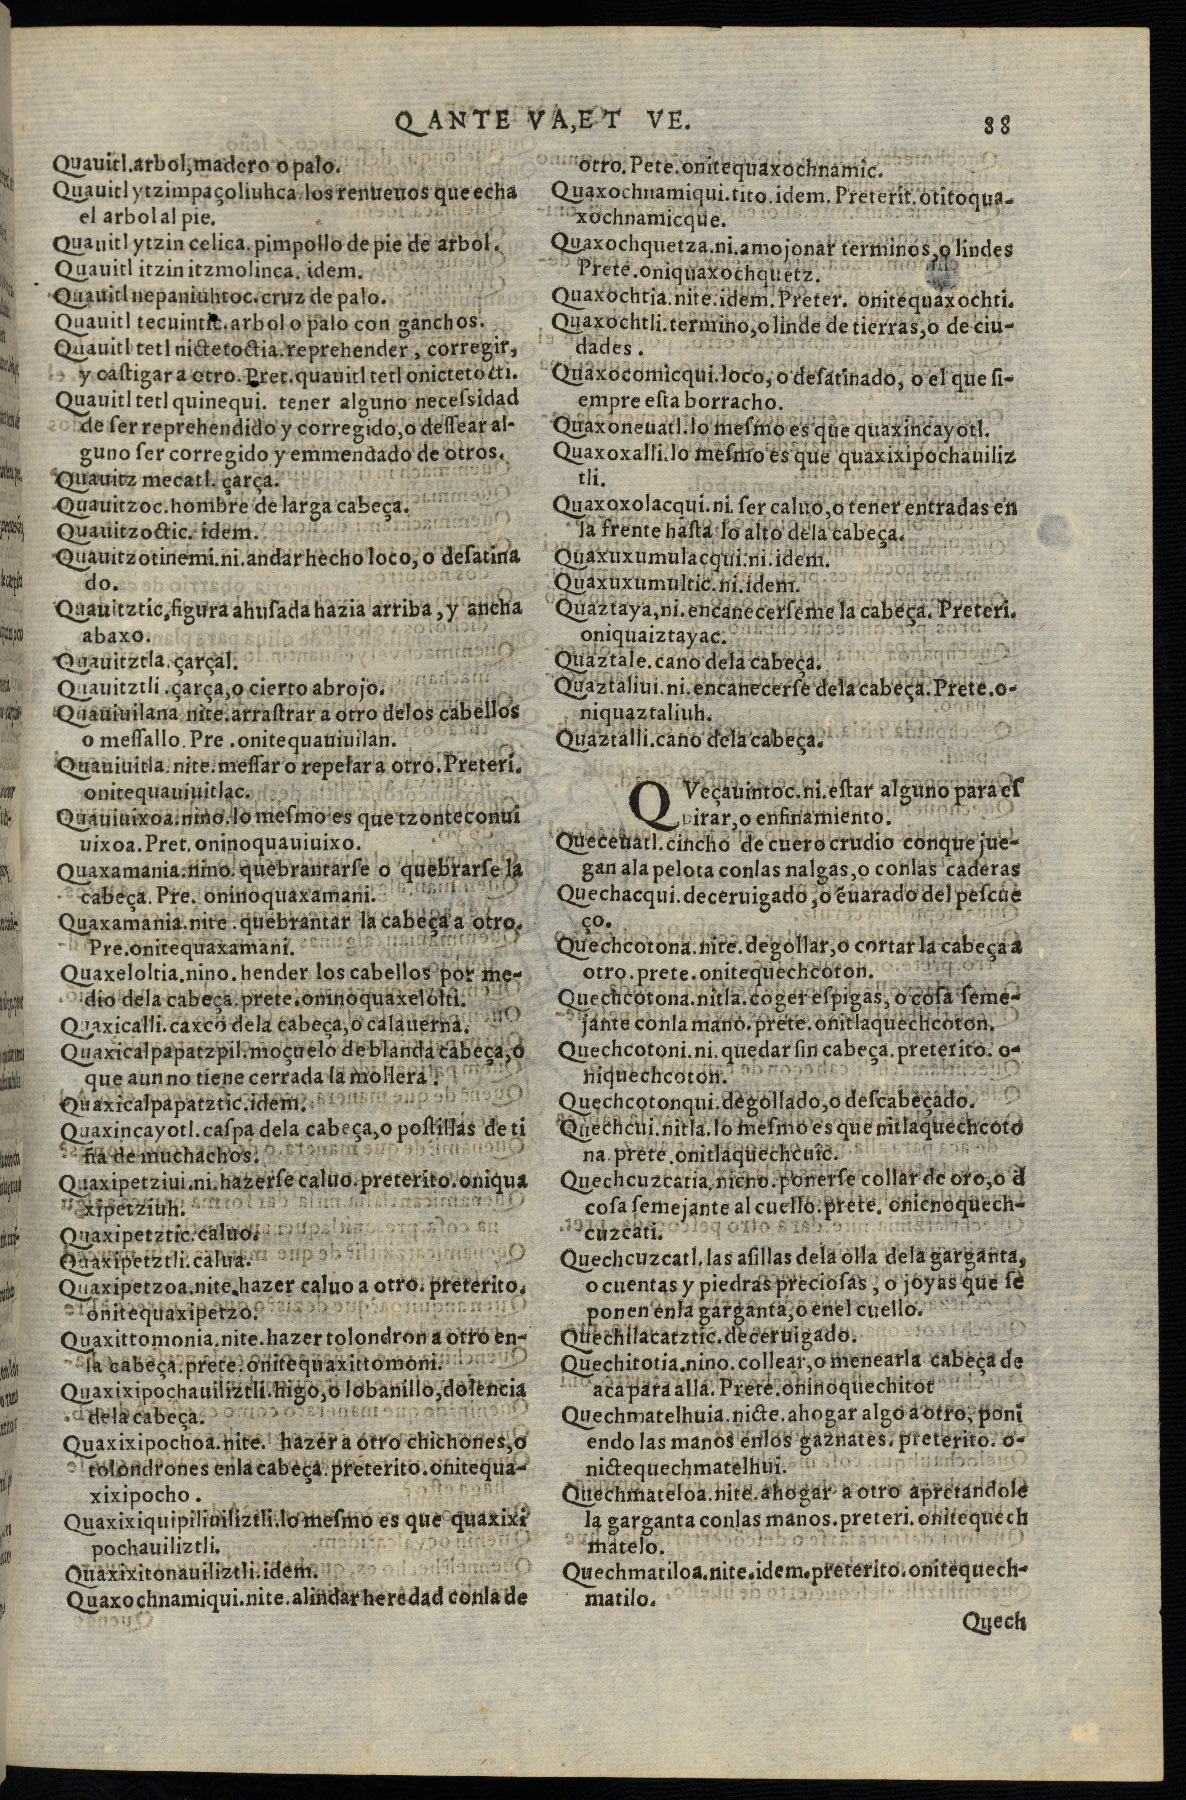 Q ANTE VA, ET VE. 88
Quauitl.arbol, madero o palo.
Quauitl ytzimpaçoliuhca.los renueuos que echa
el arbol al pie.
Quauitl ytzin celica.pimpollo de pie de arbol.
Quauitl itzin itzmolinca. idem.
Quauitl nepaniuhtoc.cruz de palo.
Quauitl tecuintic.arbol o palo con ganchos.
Quauitl tetl nictetoctia.reprehender, corregir,
y caſtigar a otro. Pret.quauitl tetl onictetocti.
Quauitl tetl quinequi. tener alguno neceſsidad
de ſer reprehendido y corregido, o deſſear al-
guno ſer corregido y emmendado de otros.
Quauitz mecatl. çarça.
Quauitzoc.hombre de larga cabeça.
Quauitzoctic. idem.
Quauitzotinemi.ni.andar hecho loco, o deſatina
do.
Quauitztic.figura ahuſada hazia arriba, y ancha
abaxo.
Quauitztla. çarçal.
Quauitztli .çarça, o cierto abrojo.
Quauiuilana.nite.arraſtrar a otro delos cabellos
o meſſallo. Pre .onitequauiuilan.
Quauiuitla.nite.meſſar o repelar a otro. Preteri.
onitequauiuitlac.
Quauiuixoa.nino.lo meſmo es que tzonteconui
uixoa. Pret. oninoquauiuixo.
Quaxamania.nino. quebrantarſe o quebrarſe la
cabeça. Pre. oninoquaxamani.
Quaxamania.nite .quebrantar la cabeça a otro.
Pre.onitequaxamani.
Quaxeloltia.nino. hender los cabellos por me-
dio dela cabeça.prete.oninoquaxelolti.
Quaxicalli.caxco dela cabeça, o calauerna.
Quaxicalpapatzpil.moçuelo de blanda cabeça, o
que aun no tiene cerrada la mollera .
Quaxicalpapatztic.idem.
Quaxincayotl.caſpa dela cabeça, o poſtillas de ti
ña de muchachos.
Quaxipetziui.ni.hazerſe caluo.preterito.oniqua
xipetziuh.
Quaxipetztic.caluo.
Quaxipetztli.calua.
Quaxipetzoa.nite.hazer caluo a otro. preterito.
onitequaxipetzo.
Quaxittomonia.nite.hazer tolondron a otro en-
la cabeça.prete.onitequaxittomoni.
Quaxixipochauiliztli.higo, o lobanillo, dolencia
dela cabeça.
Quaxixipochoa.nite. hazer a otro chichones, o
tolondrones enla cabeça.preterito.onitequa-
xixipocho .
Quaxixiquipiliuiliztli.lo meſmo es que quaxixi
pochauiliztli.
Quaxixitonauiliztli.idem.
Quaxochnamiqui.nite.alindar heredad conla de
otro. Pete. onitequaxochnamic.
Quaxochnamiqui.tito.idem. Preterit. otitoqua-
xochnamicque.
Quaxochquetza.ni.amojonar terminos, o lindes
Prete.oniquaxochquetz.
Quaxochtia.nite.idem. Preter. onitequaxochti.
Quaxochtli.termino, o linde de tierras, o de ciu-
dades .
Quaxocomicqui.loco, o deſatinado, o el que ſi-
empre eſta borracho.
Quaxoneuatl.lo meſmo es que quaxincayotl.
Quaxoxalli.lo meſmo es que quaxixipochauiliz
tli.
Quaxoxolacqui.ni.ſer caluo, o tener entradas en
la frente haſta lo alto dela cabeça.
Quaxuxumulacqui.ni.idem.
Quaxuxumultic.ni.idem.
Quaztaya, ni.encanecerſeme la cabeça. Preteri.
oniquaiztayac.
Quaztale.cano dela cabeça.
Quaztaliui.ni.encanecerſe dela cabeça. Prete.o-
niquaztaliuh.
Quaztalli.cano dela cabeça.
QVeçauintoc.ni.eſtar alguno para eſ
pirar, o enfinamiento.
Queceuatl.cincho de cuero crudio conque jue-
gan ala pelota conlas nalgas, o conlas caderas
Quechacqui.deceruigado, o ẽuarado del peſcue
ço.
Quechcotona.nite.degollar, o cortar la cabeça a
otro.prete.onitequechcoton.
Quechcotona.nitla.coger eſpigas, o coſa ſeme-
jante conla mano.prete.onitlaquechcoton.
Quechcotoni.ni.quedar ſin cabeça.preterito. o-
niquechcoton.
Quechcotonqui.degollado, o deſcabeçado.
Quechcui.nitla.lo meſmo es que nitlaquechcoto
na.prete.onitlaquechcuic.
Quechcuzcatia.nicno.ponerſe collar de oro, o d̃
coſa ſemejante al cuello.prete. onicnoquech-
cuzcati.
Quechcuzcatl.las aſillas dela olla dela garganta,
o cuentas y piedras precioſas, o joyas que ſe
ponen enla garganta, o enel cuello.
Quechilacatztic.deceruigado.
Quechitotia.nino.collear, o menearla cabeça de
aca para alla. Prete.oninoquechitot
Quechmatelhuia.nicte.ahogar algo a otro, poni
endo las manos enlos gaznates. preterito. o-
nictequechmatelhui.
Quechmateloa.nite.ahogar a otro apretandole
la garganta conlas manos.preteri.onitequech
matelo.
Quechmatiloa.nite.idem.preterito.onitequech-
matilo.
Quech